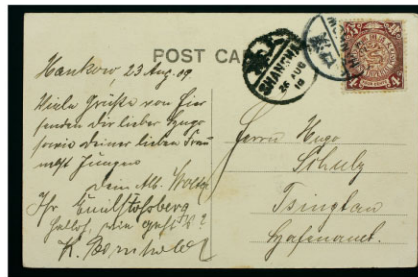 POST CA
SHANGHAI
26 AUG
Hankow, 23 Aug. 09
Viele Grüße von hier
senden Dir lieber Hugo
sowie deiner lieben Frau
nebst Jungens
Dein Alb.
Ihr Emil Stolsberg
Hallo!, wie geht's?
K.
Herrn Hugo
Schulz
Tsingtau
Hafenamt.